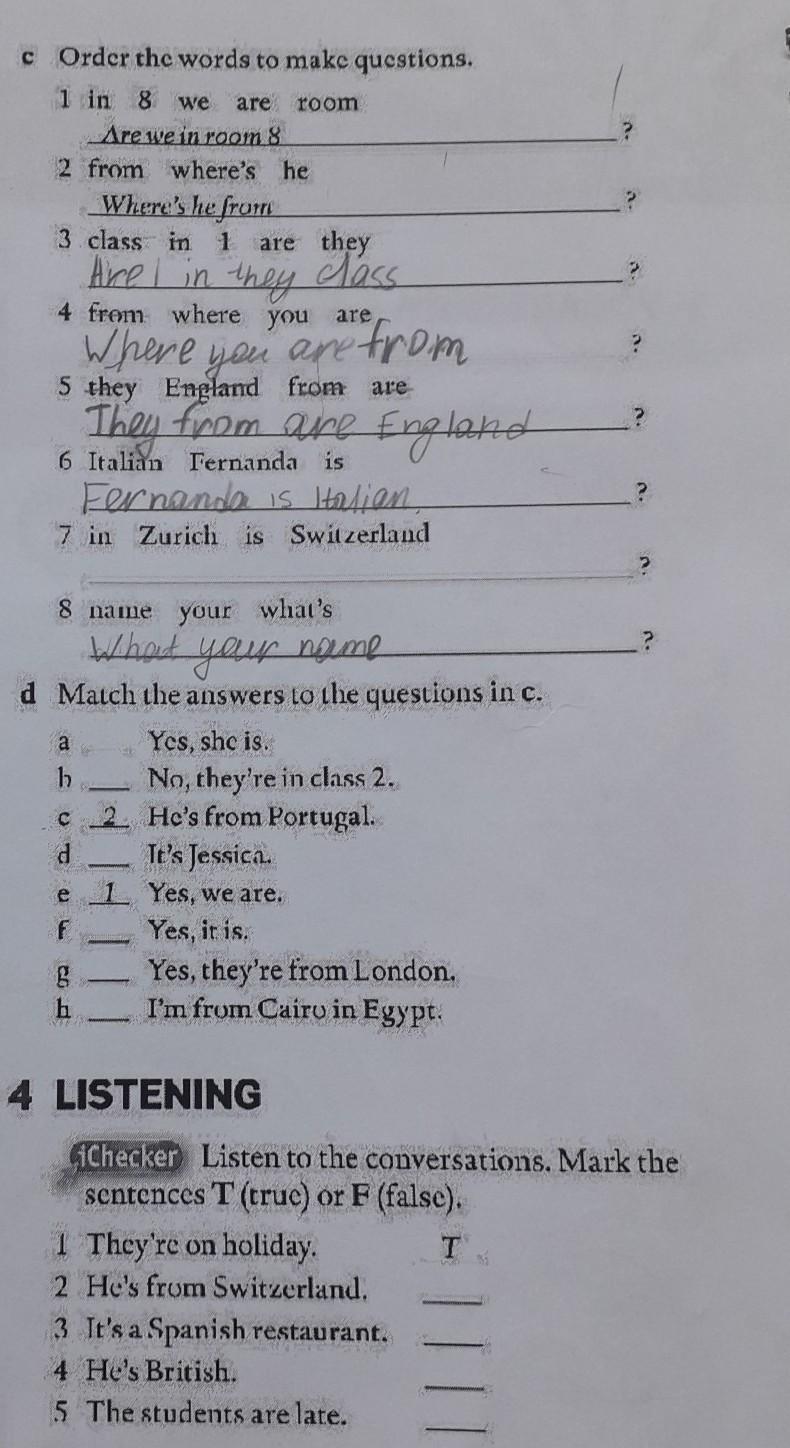 c Order the words to make questions.
1 in 8 we are room
Are we in room 8 ?
2 from where's he
Where's he from ?
3 class in 1 are they
Are 1 in they class ?
4 from where you are
Where you are from ?
5 they England from are
They from are England ?
6 Italian Fernanda is
Fernanda is Italian ?
7 in Zurich is Switzerland
?
8 name your what's
What your name ?
d Match the answers to the questions in c.
a Yes, she is.
b ___ No, they're in class 2.
c 2 He's from Portugal.
d ___ It's Jessica.
e 1 Yes, we are.
f ___ Yes, it is.
g ___ Yes, they're from London.
h ___ I'm from Cairo in Egypt.
4 LISTENING
iChecker Listen to the conversations. Mark the
sentences T (true) or F (false).
1 They're on holiday. T
2 He's from Switzerland. ___
3 It's a Spanish restaurant. ___
4 He's British. ___
5 The students are late. ___